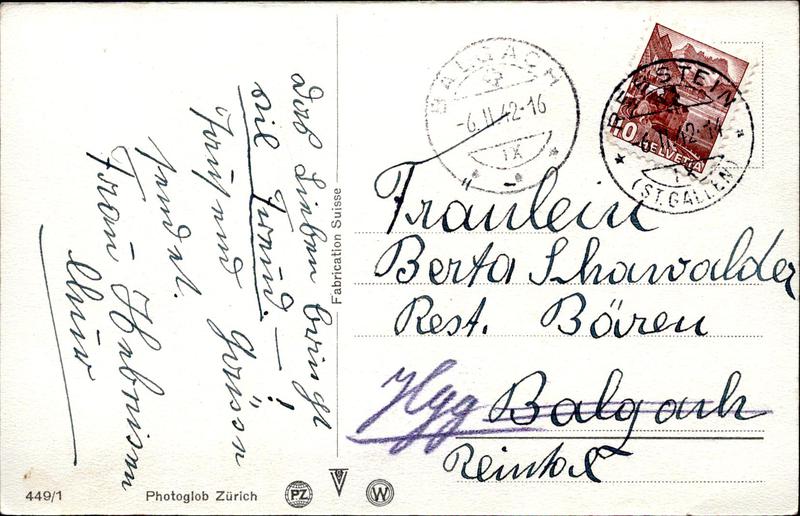 Das Lieben bringt
viel Freud. — !
Tausend Grüsse
sendet.
Frau
Fabrication Suisse
449/1 Photoglob Zürich PZ W
BALGACH
-6.II.42-16
IX
BERNSTEIN
-6.II.42-14
IX
(ST. GALLEN)
10 HELVETIA
Fräulein
Berta Schawalder
Rest. Bären
Hgg Balgach
Reintal